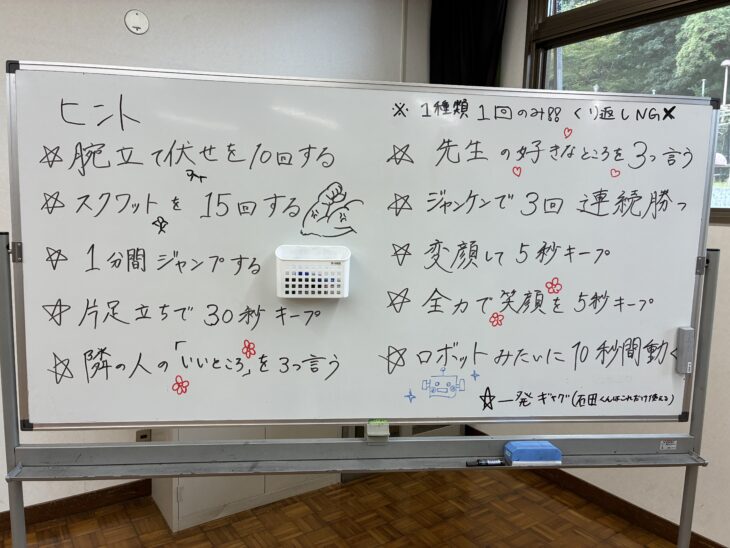 ヒント
☆ 腕立て伏せを10回する
☆ スクワットを 15回する
☆ 1分間ジャンプする
☆ 片足立ちで 30秒キープ
☆ 隣の人の「いいところ」を 3つ言う
※ 1種類 1回のみ!! くり返しNG×
☆ 先生の好きなところを 3つ言う
☆ ジャンケンで 3回 連続勝つ
☆ 変顔して 5秒キープ
☆ 全力で笑顔を 5秒キープ
☆ ロボットみたいに 10秒間動く
☆ 一発ギャグ(石田くんはこれだけ使える)